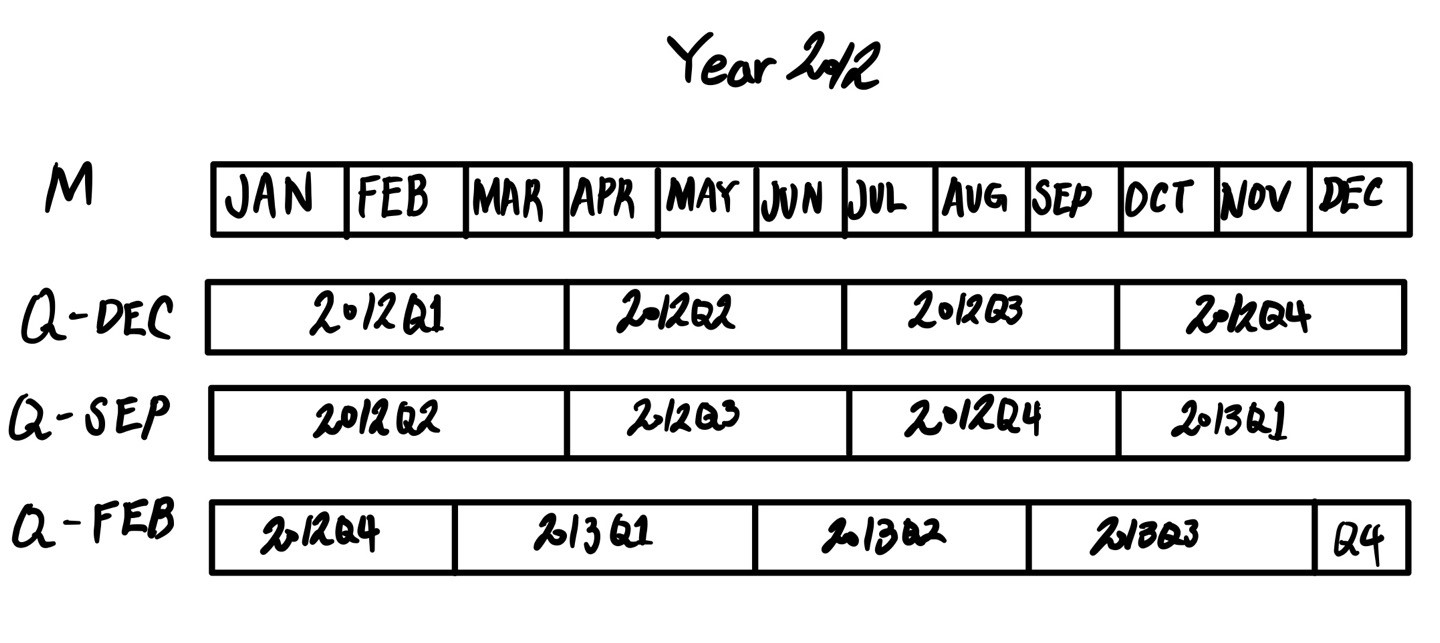 Year 2012
M JAN FEB MAR APR MAY JUN JUL AUG SEP OCT NOV DEC
Q-DEC 2012Q1 2012Q2 2012Q3 2012Q4
Q-SEP 2012Q2 2012Q3 2012Q4 2013Q1
Q-FEB 2012Q4 2013Q1 2013Q2 2013Q3 Q4